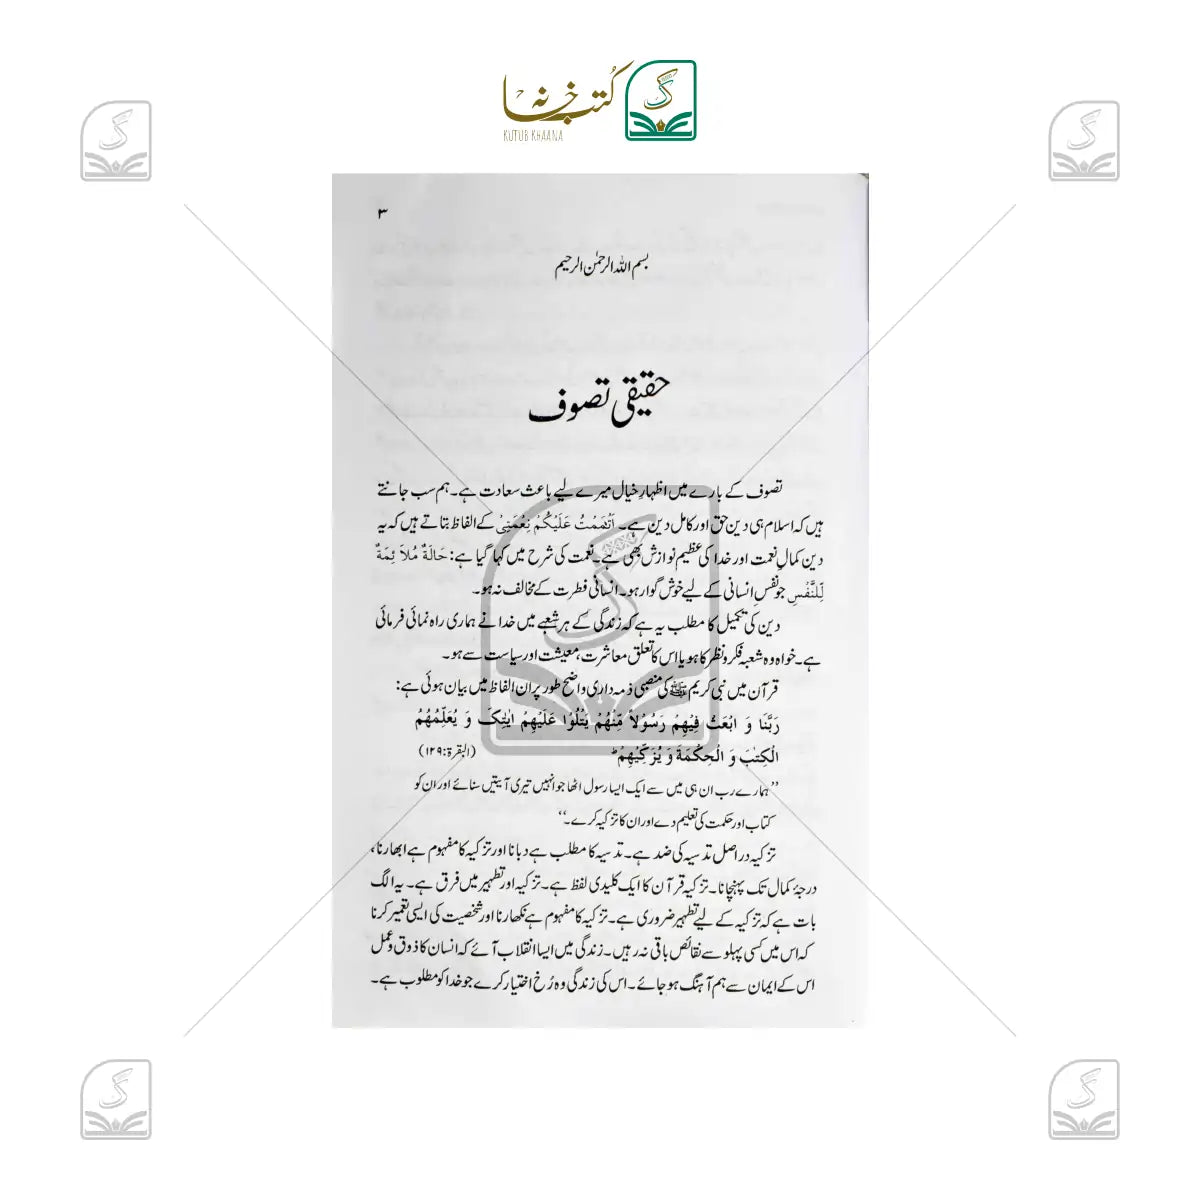 کتب خانہ
KUTUB KHAANA
۳
بسم اللہ الرحمٰن الرحیم
حقیقی تصوف
تصوف کے بارے میں اظہارِ خیال میرے لیے باعث سعادت ہے۔ ہم سب جانتے
ہیں کہ اسلام ہی دین حق اور کامل دین ہے۔ اَتْمَمْتُ عَلَیْکُمْ نِعْمَتِیْ کے الفاظ بتاتے ہیں کہ یہ
دین کمالِ نعمت اور خدا کی عظیم نوازش بھی ہے۔ نعمت کی شرح میں کہا گیا ہے: حَالَةٌ مُلاَ ئِمَةٌ
لِّلنَّفْسِ جو نفسِ انسانی کے لیے خوش گوار ہو۔ انسانی فطرت کے مخالف نہ ہو۔
دین کی تکمیل کا مطلب یہ ہے کہ زندگی کے ہر شعبے میں خدا نے ہماری راہ نمائی فرمائی
ہے۔ خواہ وہ شعبہ فکر و نظر کا ہو یا اس کا تعلق معاشرت، معیشت اور سیاست سے ہو۔
قرآن میں نبی کریم ﷺ کی منصبی ذمہ داری واضح طور پر ان الفاظ میں بیان ہوئی ہے:
رَبَّنَا وَ ابْعَثْ فِیْهِمْ رَسُوْلاً مِّنْهُمْ یَتْلُوْا عَلَیْهِمْ اٰیٰتِکَ وَ یُعَلِّمُهُمُ
الْکِتٰبَ وَ الْحِکْمَةَ وَ یُزَکِّیْهِمْ ؕ (البقرۃ:۱۲۹)
’’ہمارے رب ان ہی میں سے ایک ایسا رسول اٹھا جو انہیں تیری آیتیں سنائے اور ان کو
کتاب اور حکمت کی تعلیم دے اور ان کا تزکیہ کرے۔‘‘
تزکیہ دراصل تدسیہ کی ضد ہے۔ تدسیہ کا مطلب ہے دبانا اور تزکیہ کا مفہوم ہے ابھارنا،
درجۂ کمال تک پہنچانا۔ تزکیہ قرآن کا ایک کلیدی لفظ ہے۔ تزکیہ اور تطہیر میں فرق ہے۔ یہ الگ
بات ہے کہ تزکیہ کے لیے تطہیر ضروری ہے۔ تزکیہ کا مفہوم ہے نکھارنا اور شخصیت کی ایسی تعمیر کرنا
کہ اس میں کسی پہلو سے نقائص باقی نہ رہیں۔ زندگی میں ایسا انقلاب آئے کہ انسان کا ذوق و عمل
اس کے ایمان سے ہم آہنگ ہو جائے۔ اس کی زندگی وہ رُخ اختیار کرے جو خدا کو مطلوب ہے۔